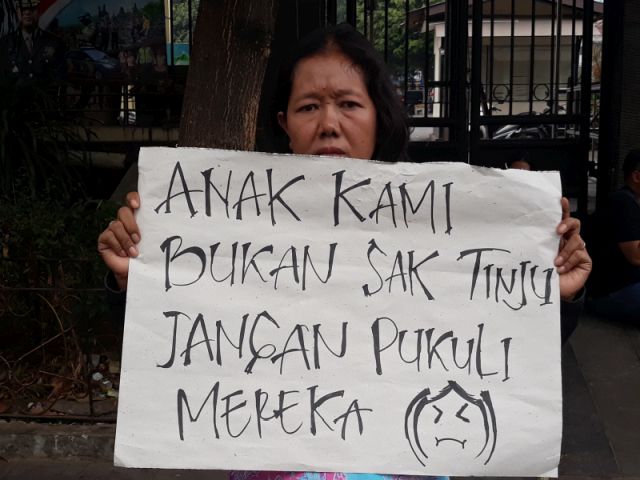 ANAK KAMI
BUKAN SAK TINJU
JANGAN PUKULI
MEREKA